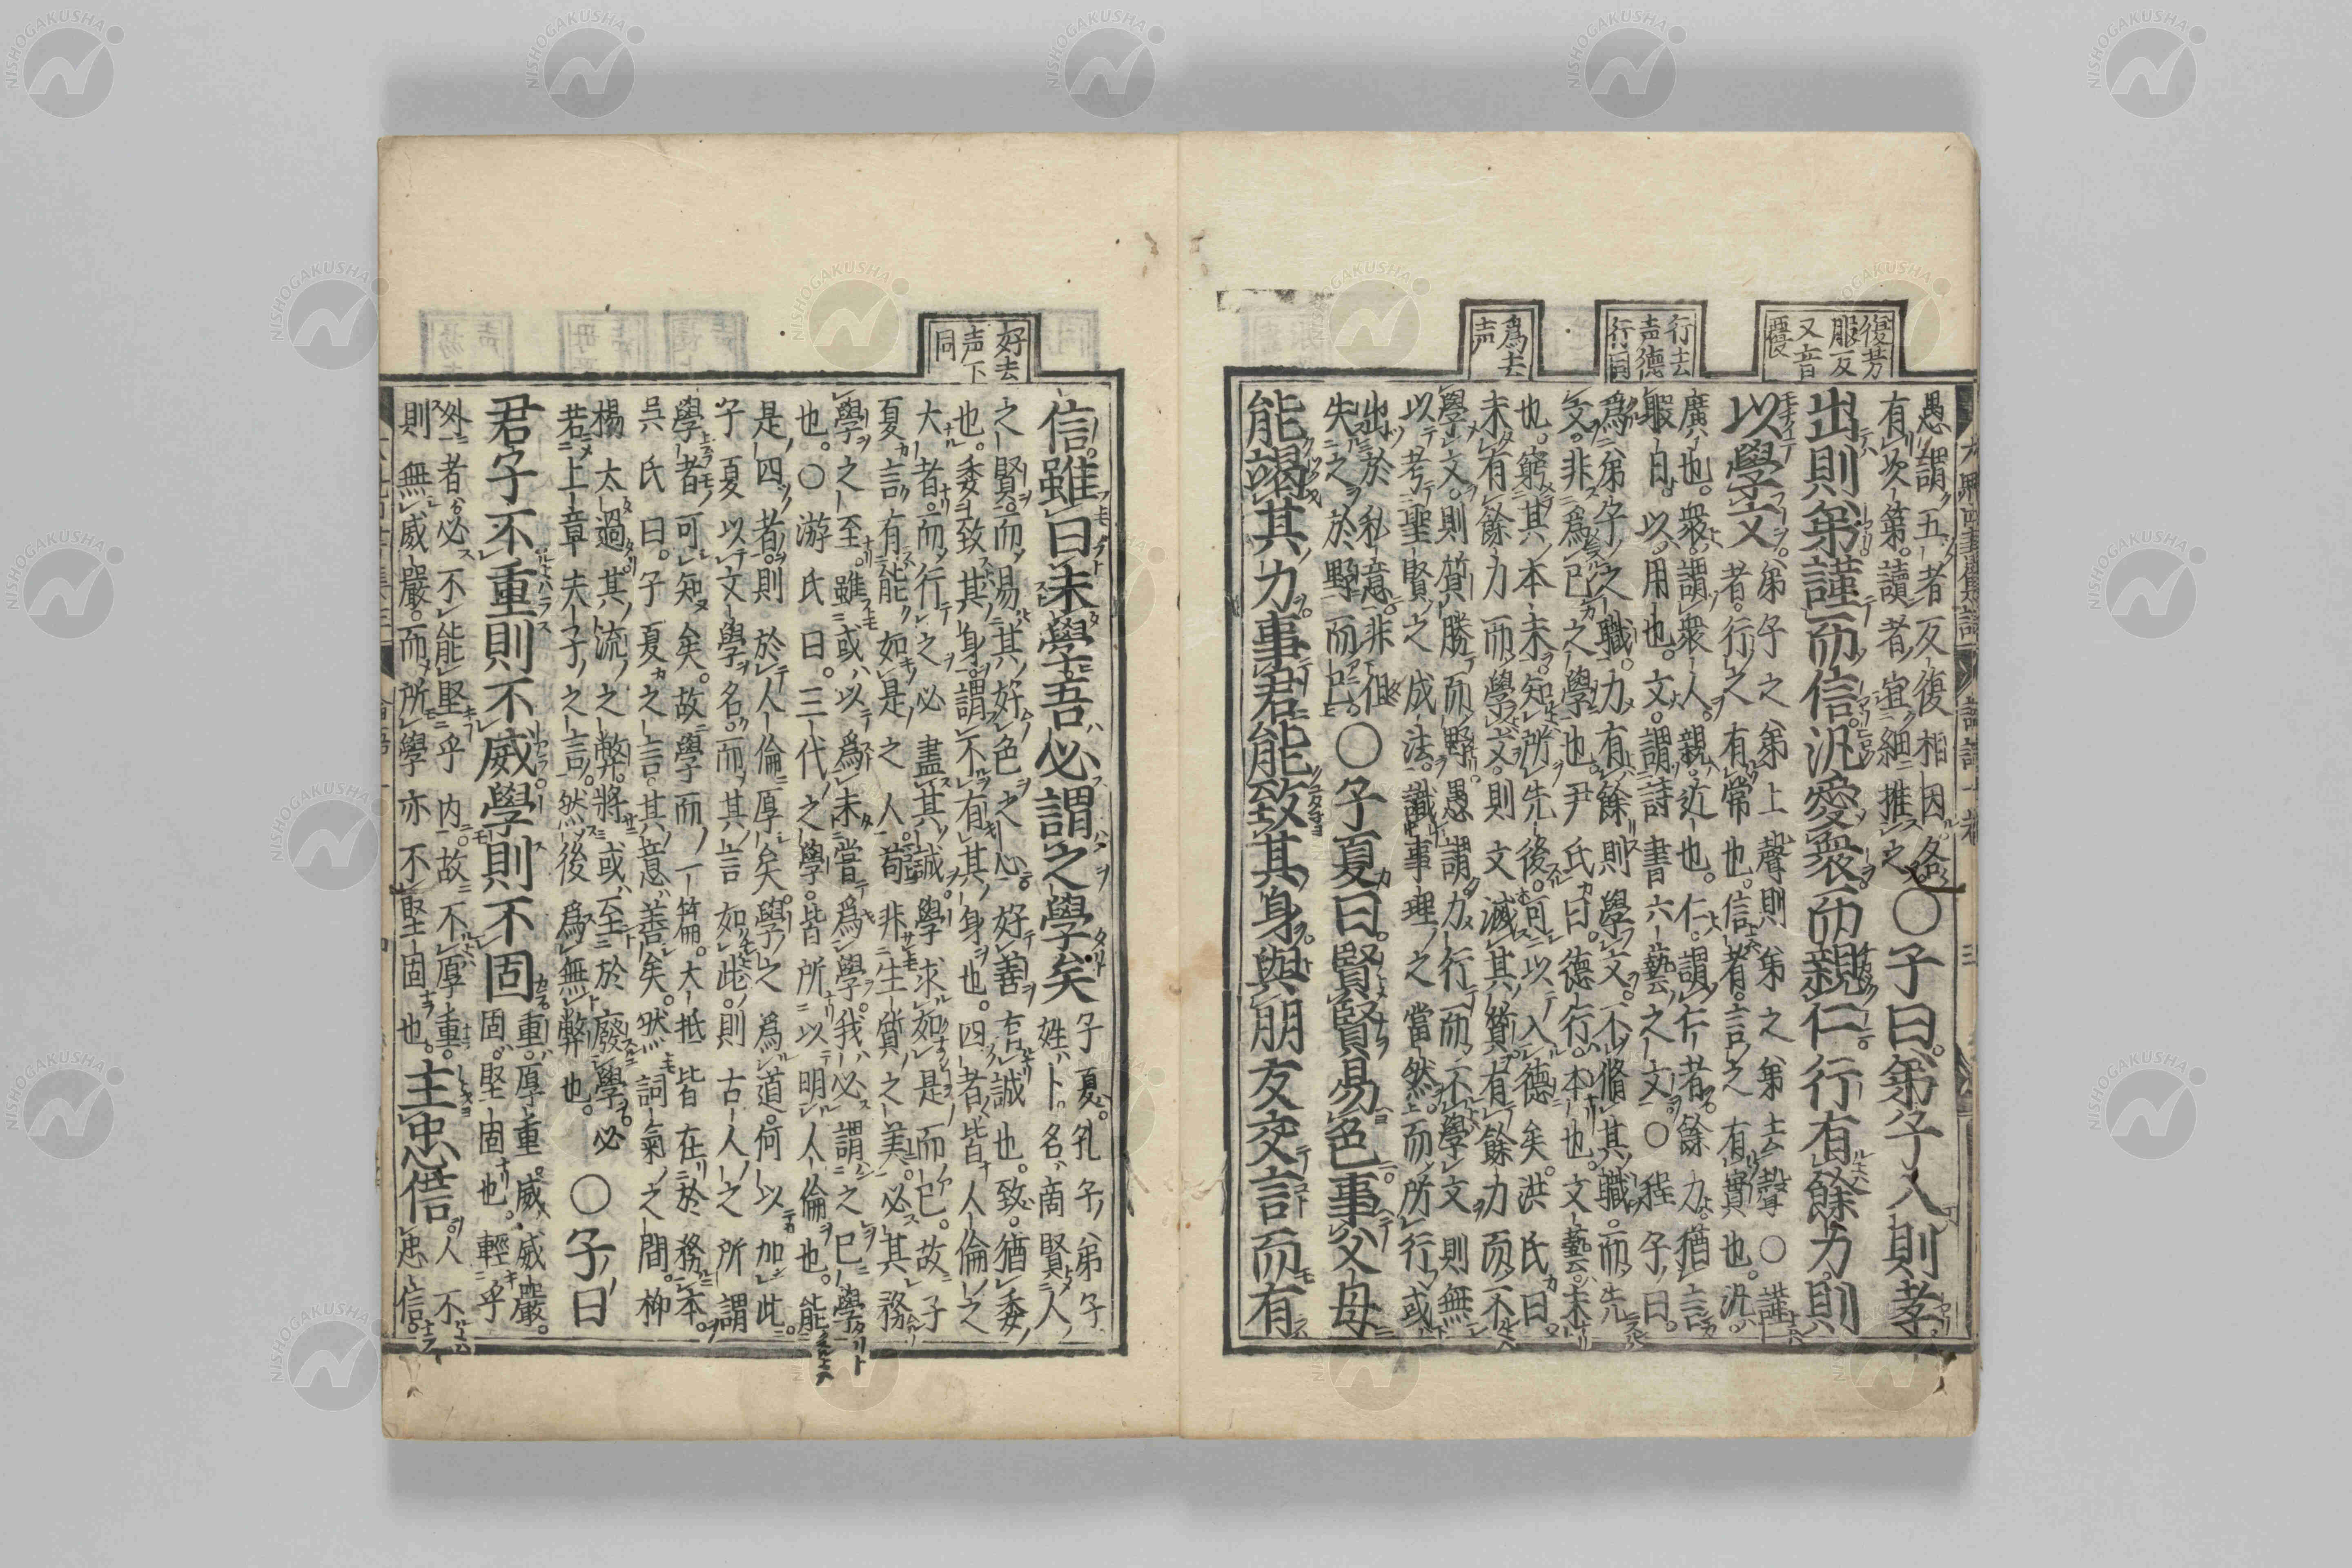 復芳
服反
又音
覆
行去
声德
行同
爲去
声
愚謂五者反復相因各
有次第讀者宜細推之
○子曰。弟子入則孝
出則弟謹而信。汎愛衆而親仁。行有餘力。則
以學文
弟子之弟上聲則弟之弟去聲○謹
者。行之有常也。信者。言之有實也。汎。
廣也。衆。謂衆人。親。近也。仁。謂仁者。餘力。猶言
暇日。以。用也。文。謂詩書六藝之文。○程子曰。
爲弟子之職。力有餘則學文。不脩其職。而先
文。非爲己之學也尹氏曰。德行。本也。文藝。末
也。窮其本末。知所先後。可以入德矣。洪氏曰。
未有餘力而學文。則文滅其質。有餘力而不
學文。則質勝而野。愚謂力行而不學文則無
以考聖賢之成法。識事理之當然。而所行或
出於私意。非但
失之於野而已。
○子夏曰。賢賢易色。事父母
能竭其力。事君能致其身。與朋友交言而有
好去
声下
同
信。雖曰未學。吾必謂之學矣
子夏。孔子弟子
姓卜。名商賢人
之賢。而易其好色之心。好善有誠也。致。猶委
也。委致其身。謂不有其身也。四者。皆人倫之
大者。而行之必盡其誠。學求如是而已。故子
夏言有能如是之人。苟非生質之美。必其務
學之至。雖或以爲未嘗爲學。我必謂之已學
也。○游氏曰。三代之學。皆所以明人倫也。能
是四者。則於人倫厚矣。學之爲道。何以加此。
子夏以文學名。而其言如此。則古人之所謂
學者可知矣。故學而一篇。大抵皆在於務本。
吳氏曰。子夏之言。其意善矣。然詞氣之間。抑
揚太過。其流之弊。將或至於廢學。必
若上章夫子之言。然後爲無弊也。
○子曰
君子不重則不威。學則不固
重。厚重。威。威嚴。
固。堅固也。輕乎
外者。必不能堅乎內。故不厚重。
則無威嚴。而所學亦不堅固也。
主忠信。
人不
忠信。